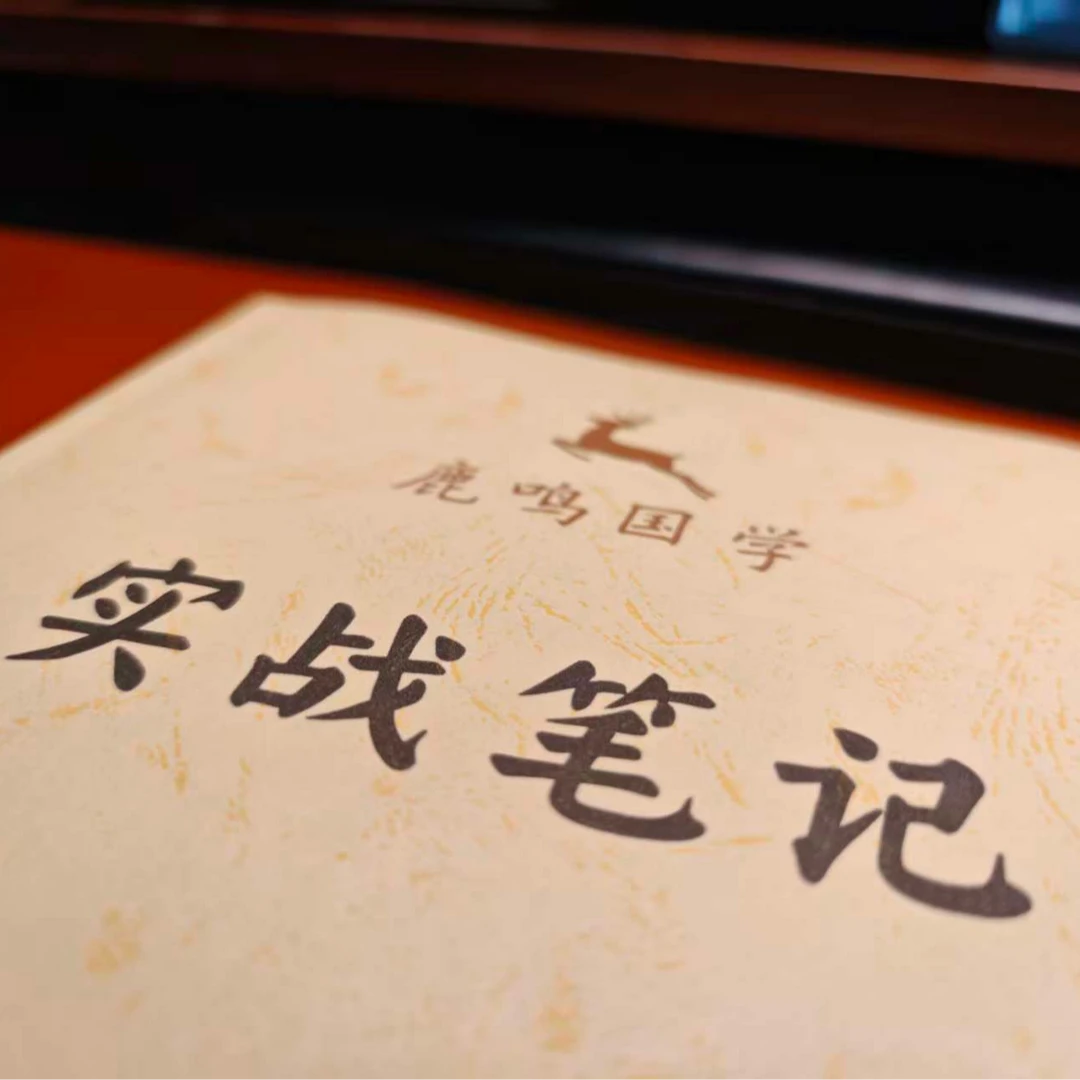 鹿鸣国学
实战笔记